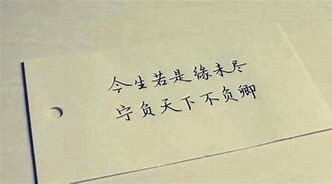 今生若是缘未尽
宁负天下不负卿